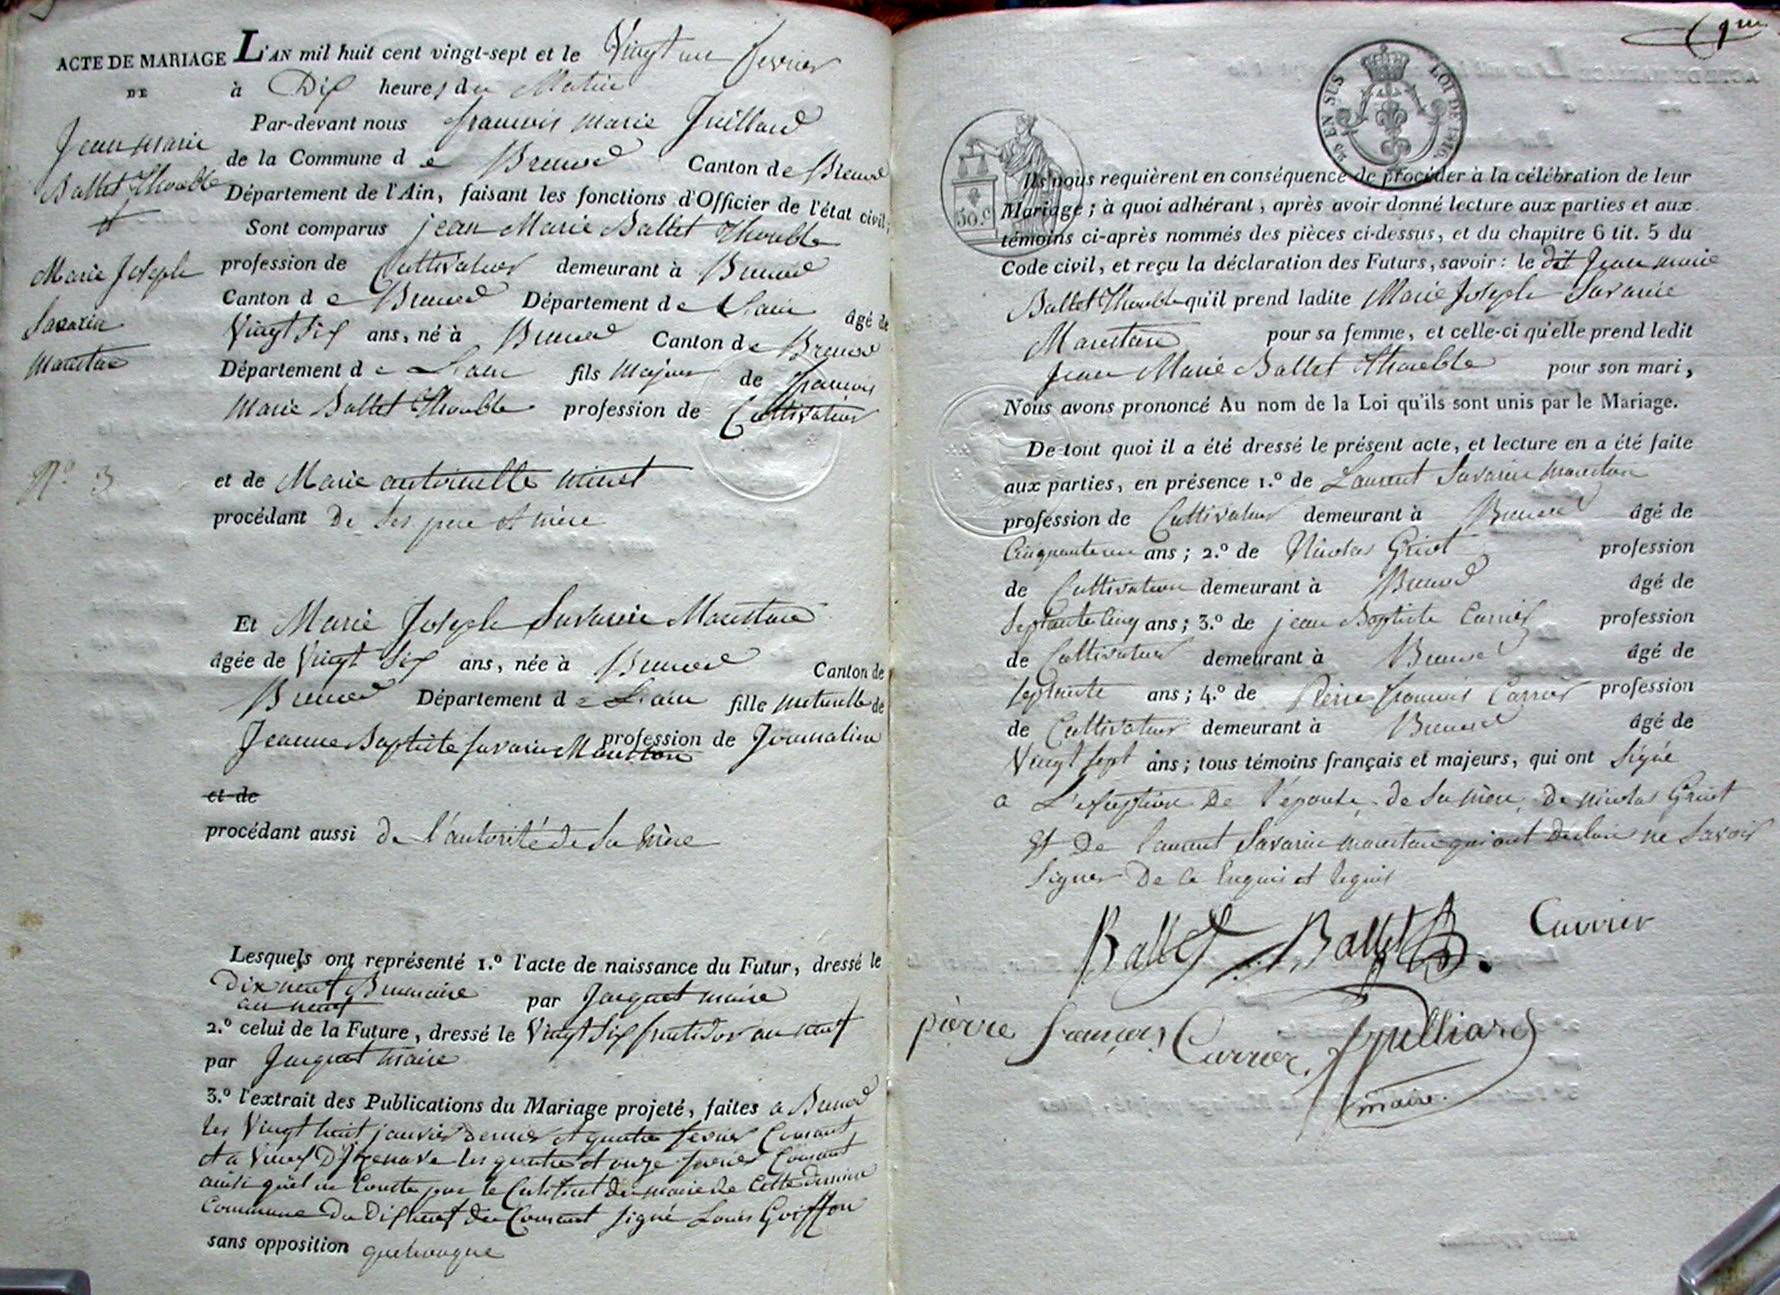 ACTE DE MARIAGE
DE
Jean marie
Ballet Thouble
Marie Joseph
Savarin
Marestan
N.º 3
L'AN mil huit cent vingt-sept et le Vingt un fevrier
à Dix heures du Matin
Par-devant nous francois marie Juillard
de la Commune de Brenod Canton de Brenod
Département de l'Ain, faisant les fonctions d'Officier de l'état civil;
Sont comparus jean Marie Ballet Thouble
profession de Cultivateur demeurant à Brenod
Canton de Brenod Département de L'ain âgé de
Vingt Six ans, né à Brenod Canton de Brenod
Département de L'ain fils majeur de francois
Marie Ballet Thouble profession de Cultivateur
et de Marie antoinette
procédant De Ses pere et mère
Et Marie Joseph Savarin Marestan
âgée de Vingt Six ans, née à Brenod Canton de
Brenod Département de L'ain fille naturelle de
Jeanne Baptiste Savarin Marestan profession de Journaliere
et de
procédant aussi de l'autorité de Sa mère
Lesquels ont représenté 1.º l'acte de naissance du Futur, dressé le
Dix neuf Brumaire
an neuf par Jacquet maire
2.º celui de la Future, dressé le Vingt Six fructidor an neuf
par Jacquet maire
3.º l'extrait des Publications du Mariage projeté, faites a Brenod
les Vingt huit janvier dernier et quatre fevrier Courant
et a Vieux D'Izenave les quatre et onze fevrier Courant
ainsi qu'il en Conste par le Certificat du maire de Cette derniere
Commune du Dix neuf du Courant signé Louis Goiffon
sans opposition quelconque
25 EN SUS
LOI DE 1816.
50.c
Ils nous requièrent en conséquence de procéder à la célébration de leur
Mariage; à quoi adhérant, après avoir donné lecture aux parties et aux
témoins ci-après nommés des pièces ci-dessus, et du chapitre 6 tit. 5 du
Code civil, et reçu la déclaration des Futurs, savoir: le dit Jean marie
Ballet Thouble qu'il prend ladite Marie Joseph Savarin
Marestan pour sa femme, et celle-ci qu'elle prend ledit
Jean Marie Ballet Thouble pour son mari,
Nous avons prononcé Au nom de la Loi qu'ils sont unis par le Mariage.
De tout quoi il a été dressé le présent acte, et lecture en a été faite
aux parties, en présence 1.º de Laurent Savarin marestan
profession de Cultivateur demeurant à Brenod âgé de
Cinquante un ans; 2.º de Nicolas Griot profession
de Cultivateur demeurant à Brenod âgé de
Septante Cinq ans; 3.º de jean Baptiste Carrier profession
de Cultivateur demeurant à Brenod âgé de
Septante ans; 4.º de Pierre francois Carrier profession
de Cultivateur demeurant à Brenod âgé de
Vingt Sept ans; tous témoins français et majeurs, qui ont Signé
a L'exception De l'épouse, de Sa mère, de nicolas Griot
Et De Laurent Savarin marestan qui ont déclaré ne Savoir
Signer De ce Enquis et Requis
Ballet Ballet Carrier
pierre françois Carrier. Juilliard
maire.